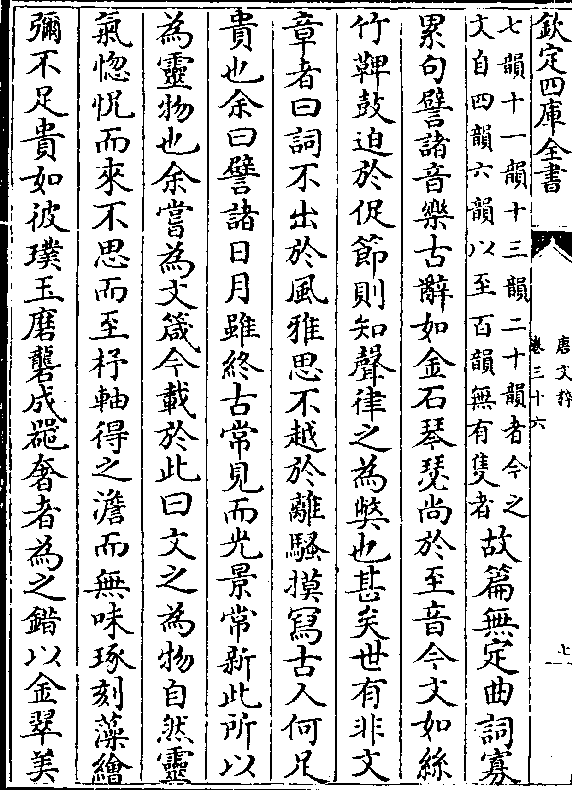 欽定四庫全書
唐文粹
卷三十六
七韻十一韻十三韻二十韻者今之
文自四韻六韻以至百韻無有隻者
故篇無定曲詞寡
累句譬諸音樂古辭如金石琴瑟尚於至音今文如絲
竹鞞鼓迫於促節則知聲律之為獘也甚矣世有非文
章者曰詞不出於風雅思不越於離騷摸寫古人何足
貴也余曰譬諸日月雖終古常見而光景常新此所以
為靈物也余嘗為文箴今載於此曰文之為物自然靈
氣惚怳而來不思而至杼軸得之澹而無味琢刻藻繪
彌不足貴如彼璞玉磨礱成器奢者為之錯以金翠美